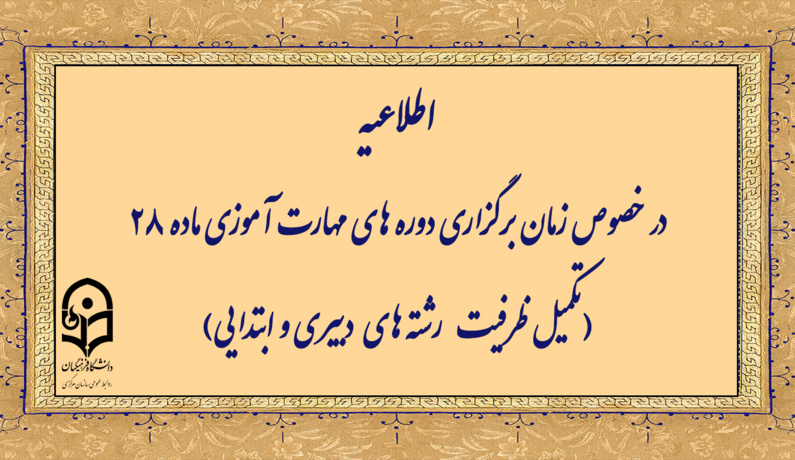 اطلاعیه
در خصوص زمان برگزاری دوره های مهارت آموزی ماده ۲۸
(تکمیل ظرفیت رشته های دبیری و ابتدایی)
دانشگاه فرهنگیان
روابط عمومی سازمان مرکزی